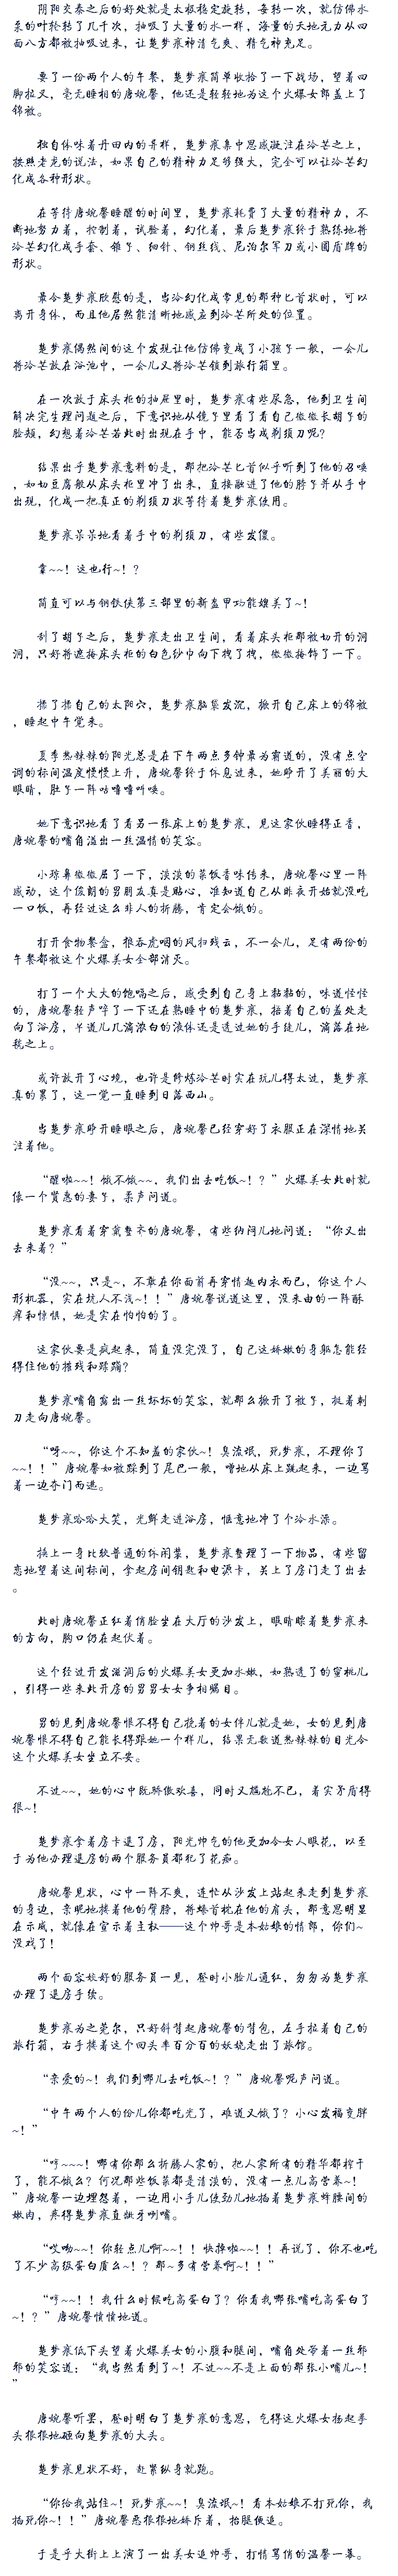 阴阳交泰之后的好处就是太极稳定旋转，每转一次，就仿佛水
泵的叶轮转了几千次，抽吸了大量的水一样，海量的天地元力从四
面八方都被抽吸过来，让楚梦痕神清气爽、精气神充足。
要了一份两个人的午餐，楚梦痕简单收拾了一下战场，望着四
脚拉叉，毫无睡相的唐婉馨，他还是轻轻地为这个火爆女郎盖上了
锦被。
独自体味着丹田内的异样，楚梦痕集中思感凝注在冷芒之上，
按照老龙的说法，如果自己的精神力足够强大，完全可以让冷芒幻
化成各种形状。
在等待唐婉馨睡醒的时间里，楚梦痕耗费了大量的精神力，不
断地努力着，控制着，试验着，幻化着，最后楚梦痕终于熟练地将
冷芒幻化成手套、锥子、细针、钢丝线、尼泊尔军刀或小圆盾牌的
形状。
最令楚梦痕欣慰的是，当冷幻化成常见的那种匕首状时，可以
离开身体，而且他居然能清晰地感应到冷芒所处的位置。
楚梦痕偶然间的这个发现让他仿佛变成了小孩子一般，一会儿
将冷芒放在浴池中，一会儿又将冷芒锁到旅行箱里。
在一次放于床头柜的抽屉里时，楚梦痕有些尿急，他到卫生间
解决完生理问题之后，下意识地从镜子里看了看自己微微长胡子的
脸颊，幻想着冷芒若此时出现在手中，能否当成剃须刀呢？
结果出乎楚梦痕意料的是，那把冷芒匕首似乎听到了他的召唤
，如切豆腐般从床头柜里冲了出来，直接融进了他的脖子并从手中
出现，化成一把真正的剃须刀状等待着楚梦痕使用。
楚梦痕呆呆地看着手中的剃须刀，有些发傻。
靠~~！这也行~！？
简直可以与钢铁侠第三部里的新盔甲功能媲美了~！
刮了胡子之后，楚梦痕走出卫生间，看着床头柜那被切开的洞
洞，只好将遮掩床头柜的白色纱巾向下拽了拽，微微掩饰了一下。
揉了揉自己的太阳穴，楚梦痕脑袋发沉，掀开自己床上的锦被
，睡起中午觉来。
夏季热辣辣的阳光总是在下午两点多钟最为霸道的，没有点空
调的标间温度慢慢上升，唐婉馨终于休息过来，她睁开了美丽的大
眼睛，肚子一阵咕噜噜叫唤。
她下意识地看了看另一张床上的楚梦痕，见这家伙睡得正香，
唐婉馨的嘴角溢出一丝温情的笑容。
小琼鼻微微屈了一下，淡淡的菜饭香味传来，唐婉馨心里一阵
感动，这个俊朗的男朋友真是贴心，准知道自己从昨夜开始就没吃
一口饭，再经过这么非人的折腾，肯定会饿的。
打开食物餐盒，狼吞虎咽的风扫残云，不一会儿，足有两份的
午餐都被这个火爆美女全部消灭。
打了一个大大的饱嗝之后，感受到自己身上黏黏的，味道怪怪
的，唐婉馨轻声啐了一下还在熟睡中的楚梦痕，掐着自己的羞处走
向了浴房，半道儿几滴浓白的液体还是透过她的手缝儿，滴落在地
毯之上。
或许放开了心境，也许是修炼冷芒时实在玩儿得太过，楚梦痕
真的累了，这一觉一直睡到日落西山。
当楚梦痕睁开睡眼之后，唐婉馨已经穿好了衣服正在深情地关
注着他。
“醒啦~~！饿不饿~~，我们出去吃饭~！？”火爆美女此时就
像一个贤惠的妻子，柔声问道。
楚梦痕看着穿戴整齐的唐婉馨，有些纳闷儿地问道：“你又出
去来着？”
“没~~，只是~，不敢在你面前再穿情趣内衣而已，你这个人
形机器，实在坑人不浅~！！”唐婉馨说道这里，没来由的一阵酥
痒和惊惧，她是实在怕怕的了。
这家伙要是疯起来，简直没完没了，自己这娇嫩的身躯怎能经
得住他的摧残和蹂躏？
楚梦痕嘴角露出一丝坏坏的笑容，就那么掀开了被子，挺着刺
刀走向唐婉馨。
“呀~~，你这个不知羞的家伙~！臭流氓，死梦痕，不理你了
~~！！”唐婉馨如被踩到了尾巴一般，噌地从床上跳起来，一边骂
着一边夺门而逃。
楚梦痕哈哈大笑，光鲜走进浴房，惬意地冲了个冷水澡。
换上一身比较普通的休闲装，楚梦痕整理了一下物品，有些留
恋地望着这间标间，拿起房间钥匙和电源卡，关上了房门走了出去
。
此时唐婉馨正红着俏脸坐在大厅的沙发上，眼睛瞟着楚梦痕来
的方向，胸口仍在起伏着。
这个经过开发滋润后的火爆美女更加水嫩，如熟透了的蜜桃儿
，引得一些来此开房的男男女女争相瞩目。
男的见到唐婉馨恨不得自己挽着的女伴儿就是她，女的见到唐
婉馨恨不得自己能长得跟她一个样儿，结果无数道热辣辣的目光令
这个火爆美女坐立不安。
不过~~，她的心中既骄傲欢喜，同时又尴尬不已，着实矛盾得
很~！
楚梦痕拿着房卡退了房，阳光帅气的他更加令女人眼花，以至
于为他办理退房的两个服务员都犯了花痴。
唐婉馨见状，心中一阵不爽，连忙从沙发上站起来走到楚梦痕
的身边，亲昵地搂着他的臂膀，将螓首枕在他的肩头，那意思明显
在示威，就像在宣示着主权——这个帅哥是本姑娘的情郎，你们~
没戏了！
两个面容姣好的服务员一见，登时小脸儿通红，匆匆为楚梦痕
办理了退房手续。
楚梦痕为之莞尔，只好斜背起唐婉馨的背包，左手拉着自己的
旅行箱，右手搂着这个回头率百分百的妖娆走出了旅馆。
“亲爱的~！我们到哪儿去吃饭~！？”唐婉馨昵声问道。
“中午两个人的份儿你都吃光了，难道又饿了？小心发福变胖
~！”
“哼~~~！哪有你那么折腾人家的，把人家所有的精华都榨干
了，能不饿么？何况那些饭菜都是清淡的，没有一点儿高营养~！
”唐婉馨一边埋怨着，一边用小手儿使劲儿地掐着楚梦痕蜂腰间的
嫩肉，疼得楚梦痕直龇牙咧嘴。
“哎呦~~！你轻点儿啊~~！！快掉啦~~！！再说了，你不也吃
了不少高级蛋白质么~！？那~多有营养啊~！！”
“哼~~！！我什么时候吃高蛋白了？你看我哪张嘴吃高蛋白了
~！？”唐婉馨愤愤地道。
楚梦痕低下头望着火爆美女的小腹和腿间，嘴角处带着一丝邪
邪的笑容道：“我当然看到了~！不过~~不是上面的那张小嘴儿~！
”
唐婉馨听罢，登时明白了楚梦痕的意思，气得这火爆女扬起拳
头狠狠地砸向楚梦痕的大头。
楚梦痕见状不好，赶紧纵身就跑。
“你给我站住~！死梦痕~~！臭流氓~！看本姑娘不打死你，我
掐死你~！！”唐婉馨恶狠狠地娇斥着，抬腿便追。
于是乎大街上上演了一出美女追帅哥，打情骂俏的温馨一幕。